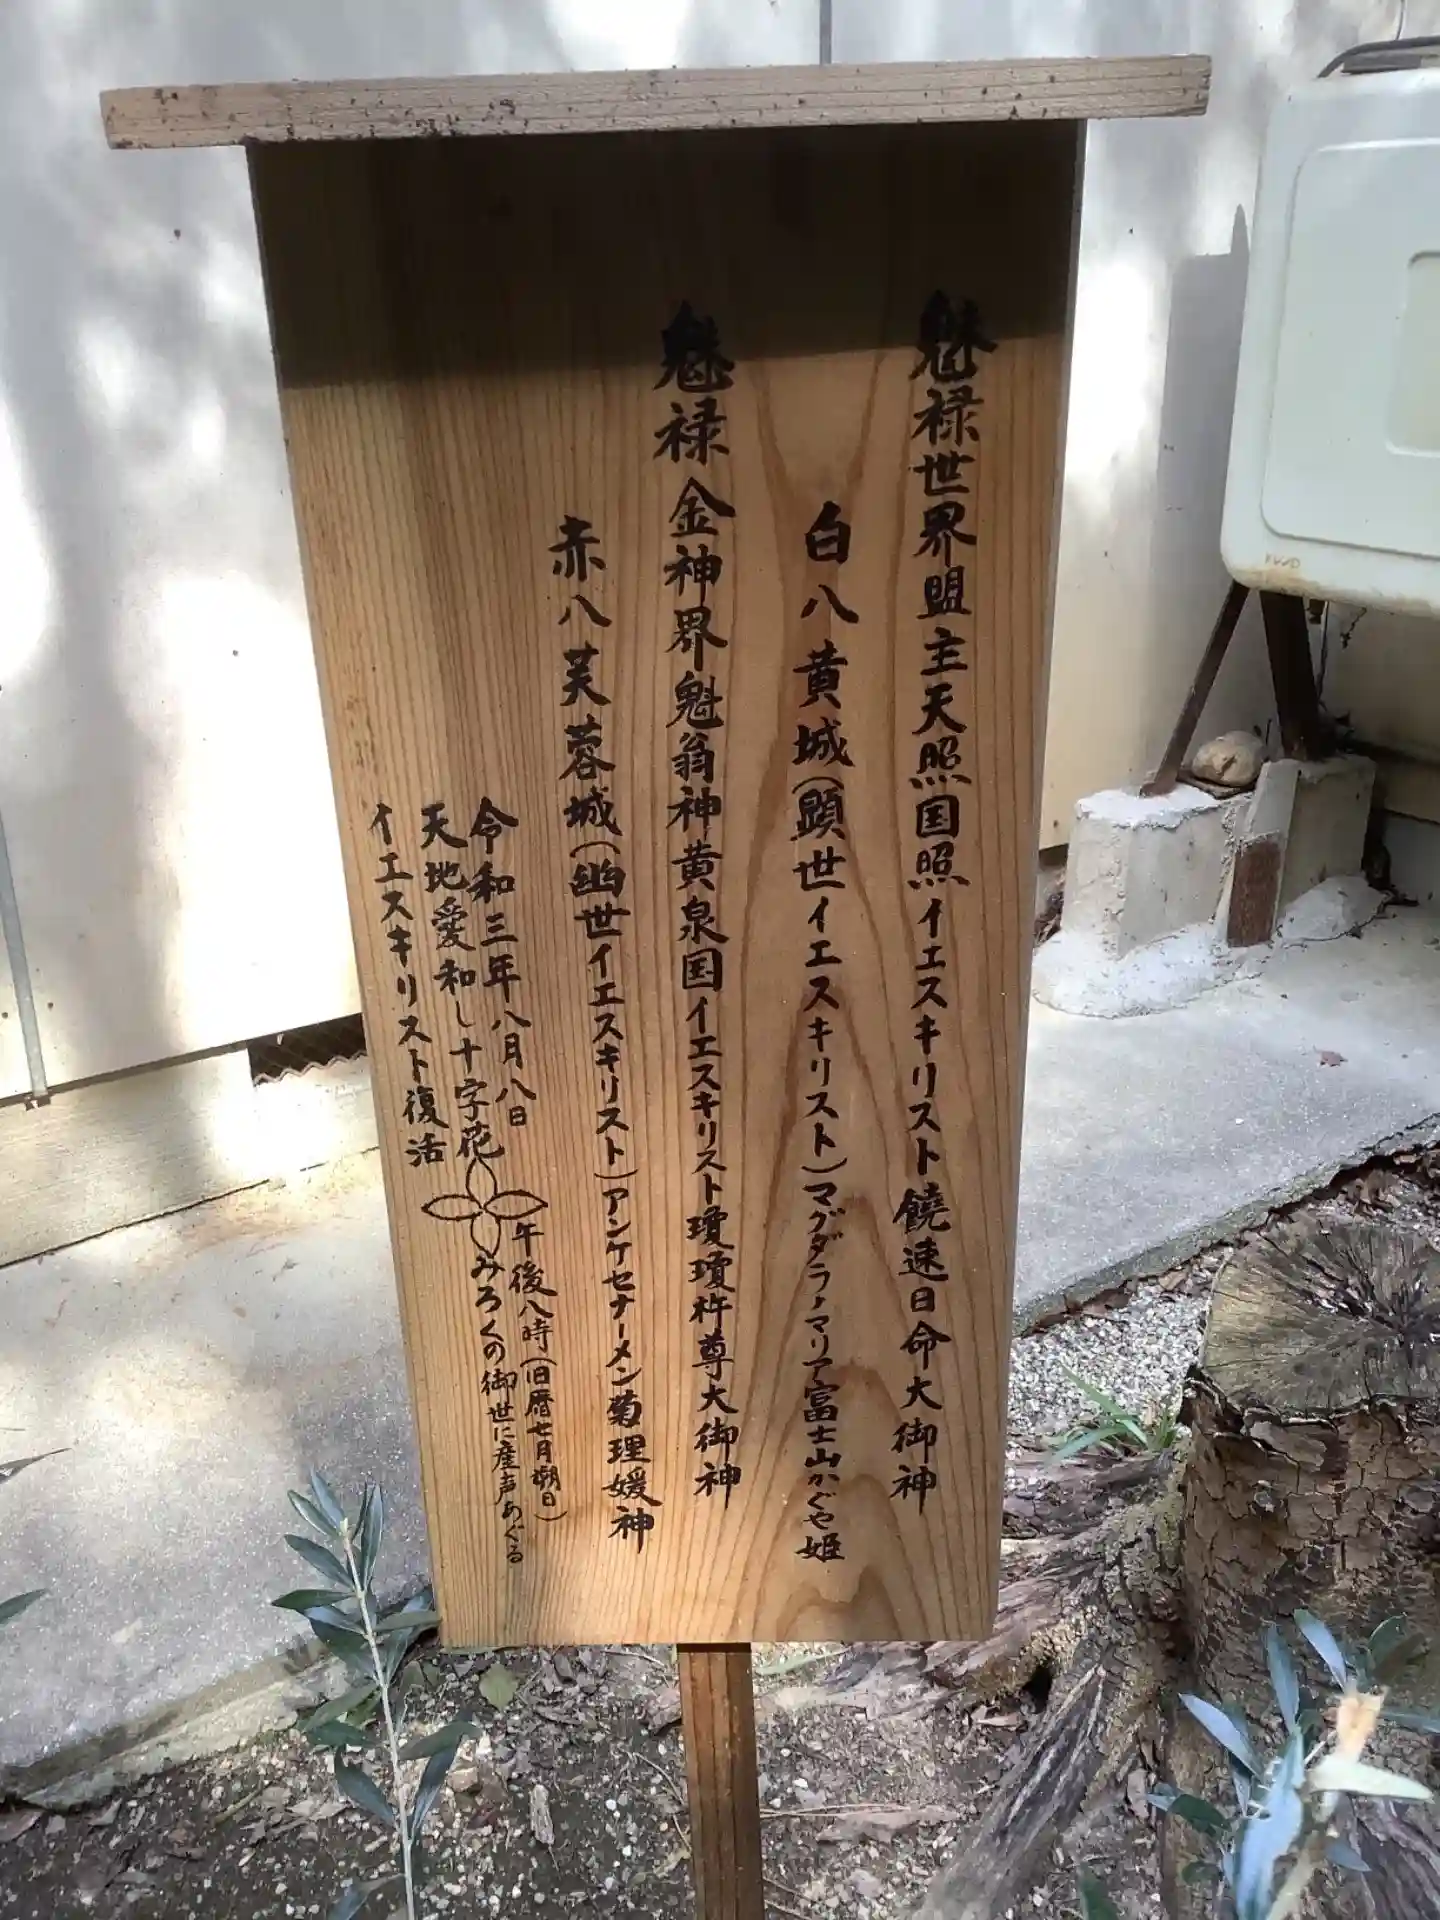 魁禄世界盟主天照国照イエスキリスト饒速日命大御神
白八黄城(顕世イエスキリスト)マグダラ・マリア富士山かぐや姫
魁禄金神界魁翁神黄泉国イエスキリスト瓊瓊杵尊大御神
赤八芙蓉城(幽世イエスキリスト)アンケセナーメン菊理媛神
令和三年八月八日午後八時(旧暦七月朔日)
天地愛和し十字花みろくの御世に産声あぐる
イエスキリスト復活